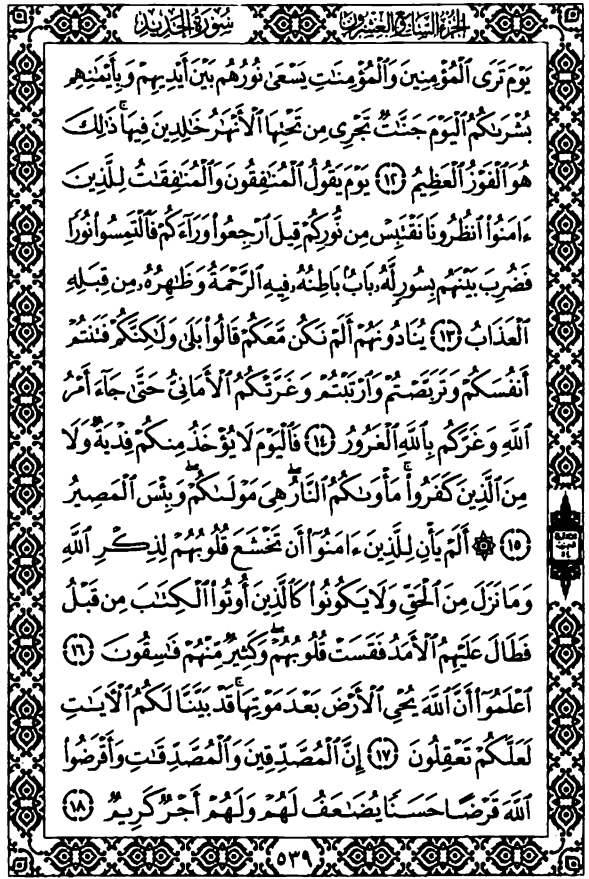 سُورَةُ الحَدِيد
الجُزْءُ السَّابِعُ وَالعِشْرُون
يَوْمَ تَرَى ٱلْمُؤْمِنِينَ وَٱلْمُؤْمِنَٰتِ يَسْعَىٰ نُورُهُم بَيْنَ أَيْدِيهِمْ وَبِأَيْمَٰنِهِم
بُشْرَىٰكُمُ ٱلْيَوْمَ جَنَّٰتٌ تَجْرِى مِن تَحْتِهَا ٱلْأَنْهَٰرُ خَٰلِدِينَ فِيهَا ۚ ذَٰلِكَ
هُوَ ٱلْفَوْزُ ٱلْعَظِيمُ ﴿١٢﴾ يَوْمَ يَقُولُ ٱلْمُنَٰفِقُونَ وَٱلْمُنَٰفِقَٰتُ لِلَّذِينَ
ءَامَنُوا۟ ٱنظُرُونَا نَقْتَبِسْ مِن نُّورِكُمْ قِيلَ ٱرْجِعُوا۟ وَرَآءَكُمْ فَٱلْتَمِسُوا۟ نُورًا
فَضُرِبَ بَيْنَهُم بِسُورٍ لَّهُۥ بَابٌۢ بَاطِنُهُۥ فِيهِ ٱلرَّحْمَةُ وَظَٰهِرُهُۥ مِن قِبَلِهِ
ٱلْعَذَابُ ﴿١٣﴾ يُنَادُونَهُمْ أَلَمْ نَكُن مَّعَكُمْ قَالُوا۟ بَلَىٰ وَلَٰكِنَّكُمْ فَتَنتُمْ
أَنفُسَكُمْ وَتَرَبَّصْتُمْ وَٱرْتَبْتُمْ وَغَرَّتْكُمُ ٱلْأَمَانِىُّ حَتَّىٰ جَآءَ أَمْرُ
ٱللَّهِ وَغَرَّكُم بِٱللَّهِ ٱلْغَرُورُ ﴿١٤﴾ فَٱلْيَوْمَ لَا يُؤْخَذُ مِنكُمْ فِدْيَةٌ وَلَا
مِنَ ٱلَّذِينَ كَفَرُوا۟ ۚ مَأْوَىٰكُمُ ٱلنَّارُ ۖ هِىَ مَوْلَىٰكُمْ ۖ وَبِئْسَ ٱلْمَصِيرُ
﴿١٥﴾ ۞ أَلَمْ يَأْنِ لِلَّذِينَ ءَامَنُوٓا۟ أَن تَخْشَعَ قُلُوبُهُمْ لِذِكْرِ ٱللَّهِ
وَمَا نَزَلَ مِنَ ٱلْحَقِّ وَلَا يَكُونُوا۟ كَٱلَّذِينَ أُوتُوا۟ ٱلْكِتَٰبَ مِن قَبْلُ
فَطَالَ عَلَيْهِمُ ٱلْأَمَدُ فَقَسَتْ قُلُوبُهُمْ ۖ وَكَثِيرٌ مِّنْهُمْ فَٰسِقُونَ ﴿١٦﴾
ٱعْلَمُوٓا۟ أَنَّ ٱللَّهَ يُحْىِ ٱلْأَرْضَ بَعْدَ مَوْتِهَا ۚ قَدْ بَيَّنَّا لَكُمُ ٱلْءَايَٰتِ
لَعَلَّكُمْ تَعْقِلُونَ ﴿١٧﴾ إِنَّ ٱلْمُصَّدِّقِينَ وَٱلْمُصَّدِّقَٰتِ وَأَقْرَضُوا۟
ٱللَّهَ قَرْضًا حَسَنًا يُضَٰعَفُ لَهُمْ وَلَهُمْ أَجْرٌ كَرِيمٌ ﴿١٨﴾
٥٣٩